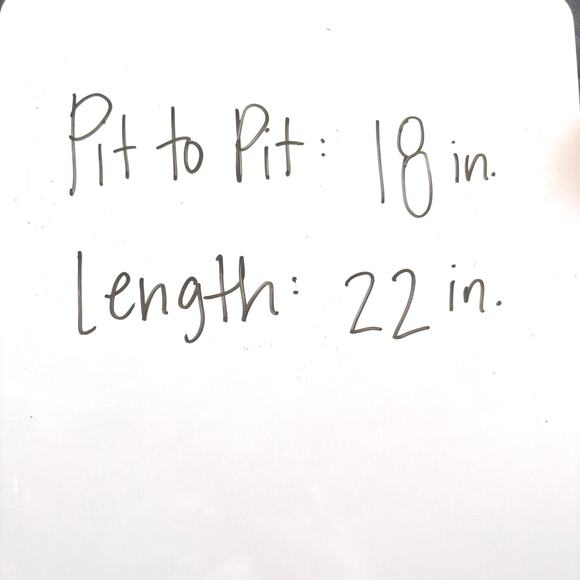 Pit to Pit: 18 in.
Length: 22 in.